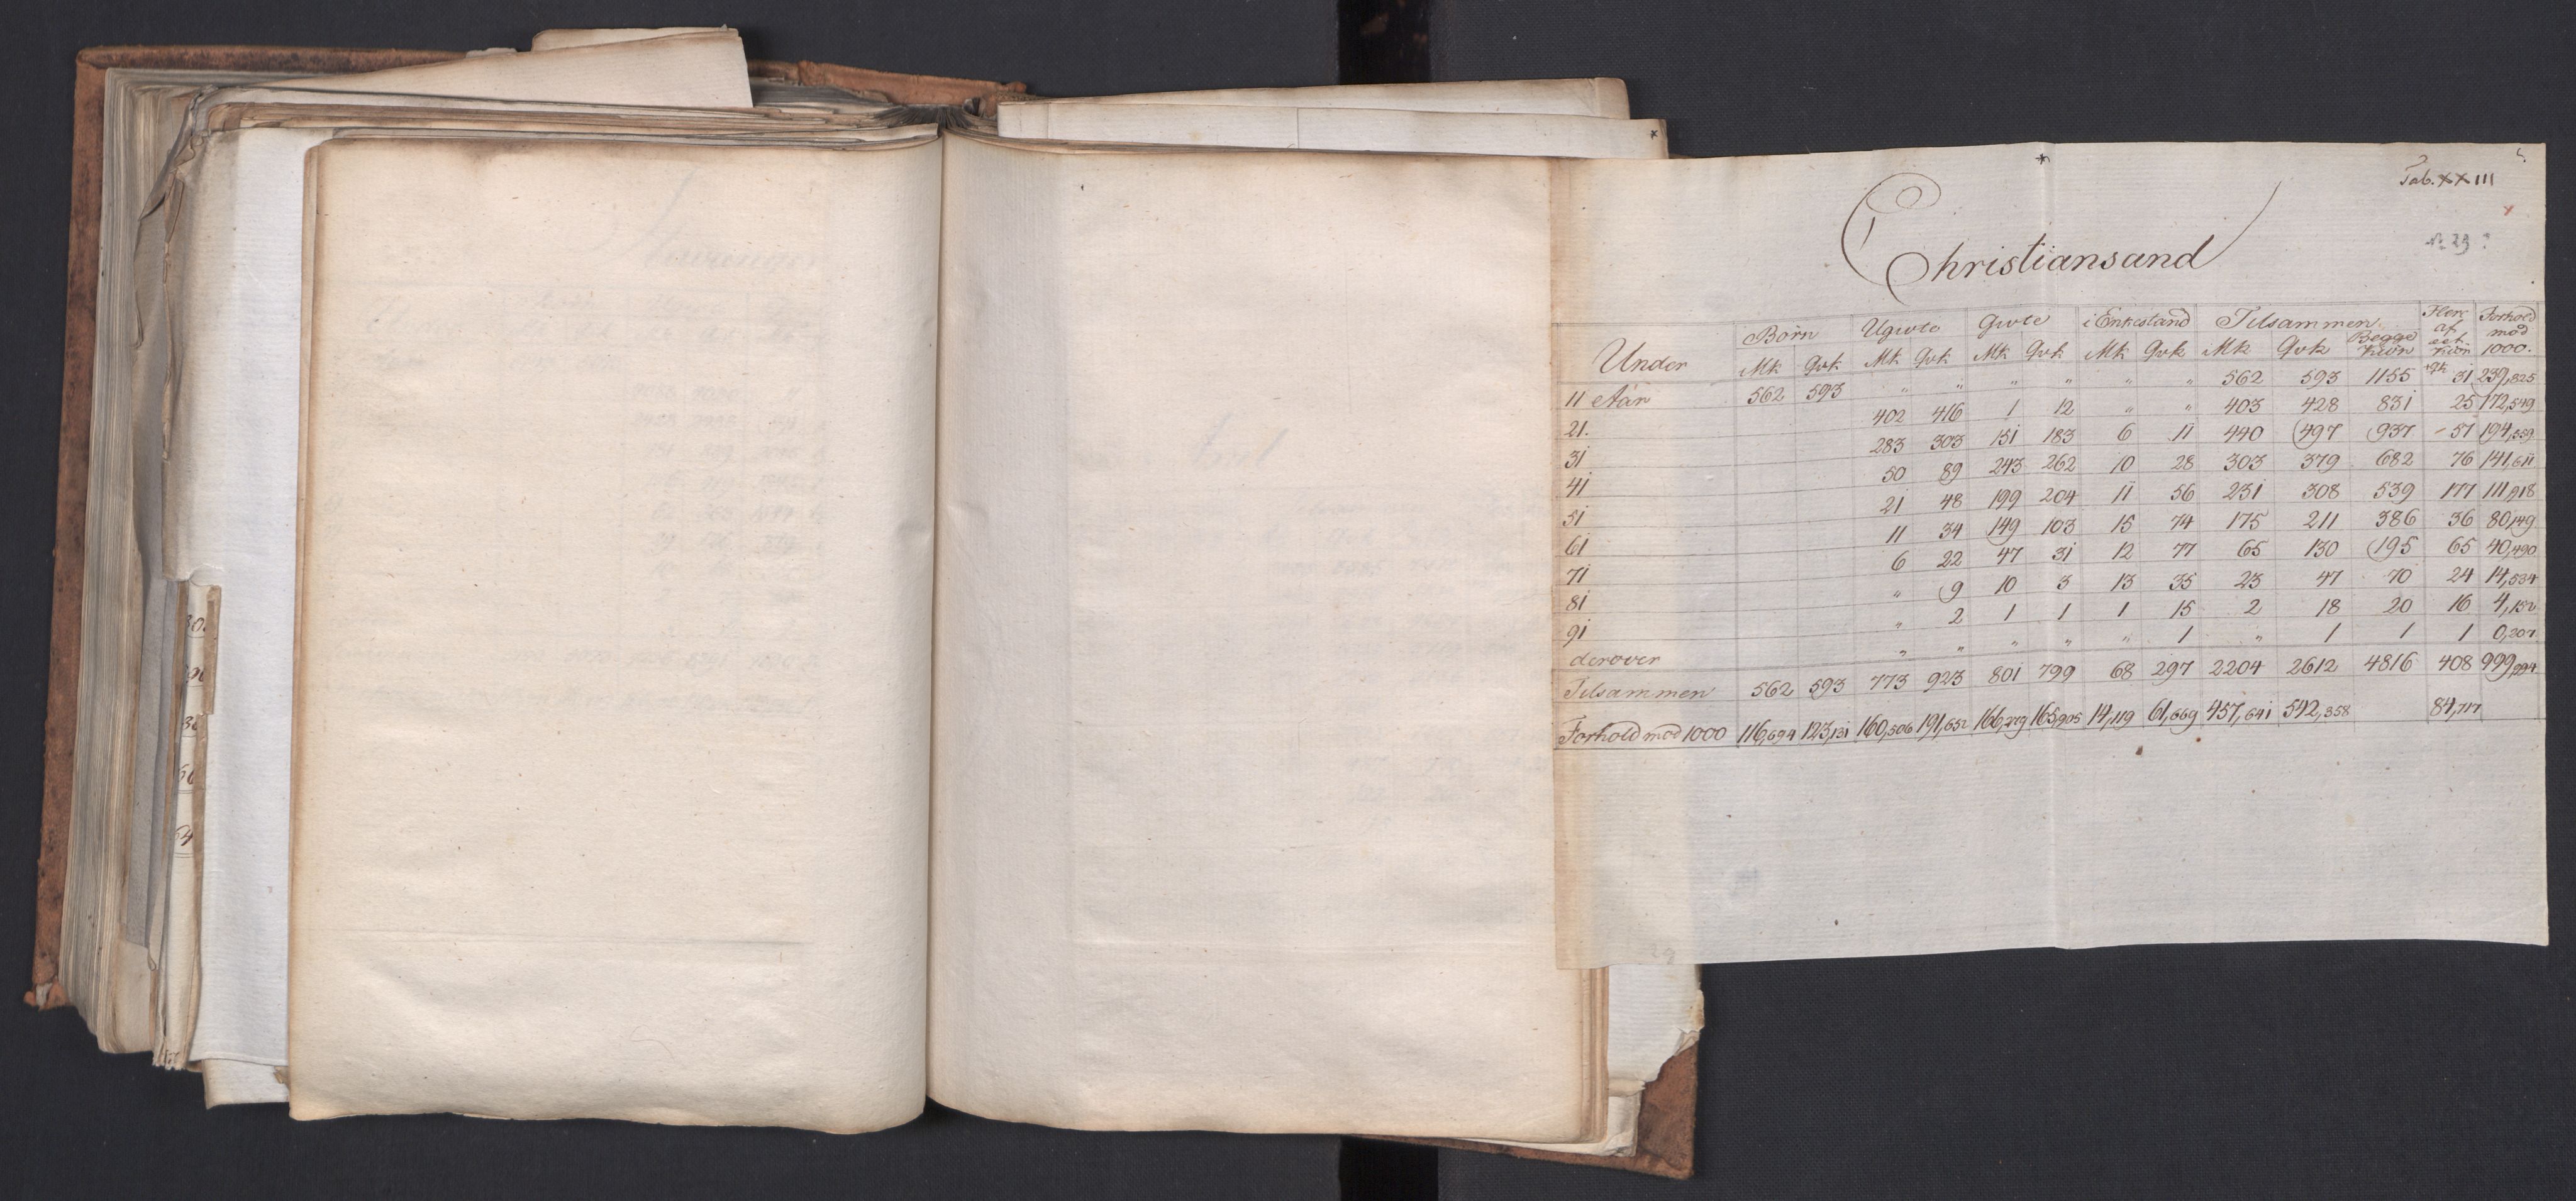 Tab. XXIII
Christiansand
Under Børn Ugivte Givte i Enkestand Tilsammen Fler af eet Kiøn Forhold mod 1000.
Mk Qvk Mk Qvk Mk Qvk Mk Qvk Mk Qvk Begge Kiøn
11 Aar 562 593 " " " " " " 562 593 1155 31 239,825
21. 402 416 1 12 " " 403 428 831 25 172,549
31 283 303 151 183 6 11 440 497 937 57 194,559
41 50 89 243 262 10 28 303 379 682 76 141,611
51 21 48 199 204 11 56 231 308 539 177 111,918
61 11 34 149 103 15 74 175 211 386 36 80,149
71 6 22 47 31 12 77 65 130 195 65 40,490
81 " 9 10 3 13 35 23 47 70 24 14,534
91 " 2 1 1 1 15 2 18 20 16 4,152
derover " " " " " 1 " 1 1 1 0,207
Tilsammen 562 593 773 923 801 799 68 297 2204 2612 4816 408 999,994
Forhold mod 1000 116,694 123,131 160,506 191,652 166,319 165,905 14,119 61,669 457,641 542,358 84,717